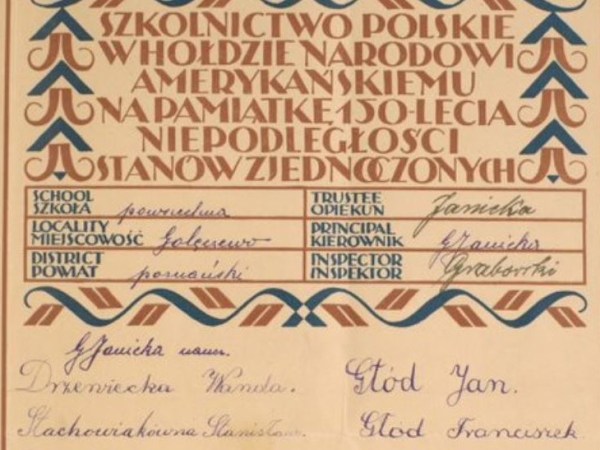 SZKOLNICTWO POLSKIE
W HOŁDZIE NARODOWI
AMERYKAŃSKIEMU
NA PAMIĄTKĘ 150-LECIA
NIEPODLEGŁOŚCI
STANÓW ZJEDNOCZONYCH
SCHOOL
SZKOŁA powszechna
TRUSTEE
OPIEKUN Janicka
LOCALITY
MIEJSCOWOŚĆ Golęczewo
PRINCIPAL
KIEROWNIK G Janicka
DISTRICT
POWIAT poznański
INSPECTOR
INSPEKTOR Grabowski
G Janicka naucz.
Drzewiecka Wanda.
Głód Jan.
Stachowiakówna
Głód Franciszek